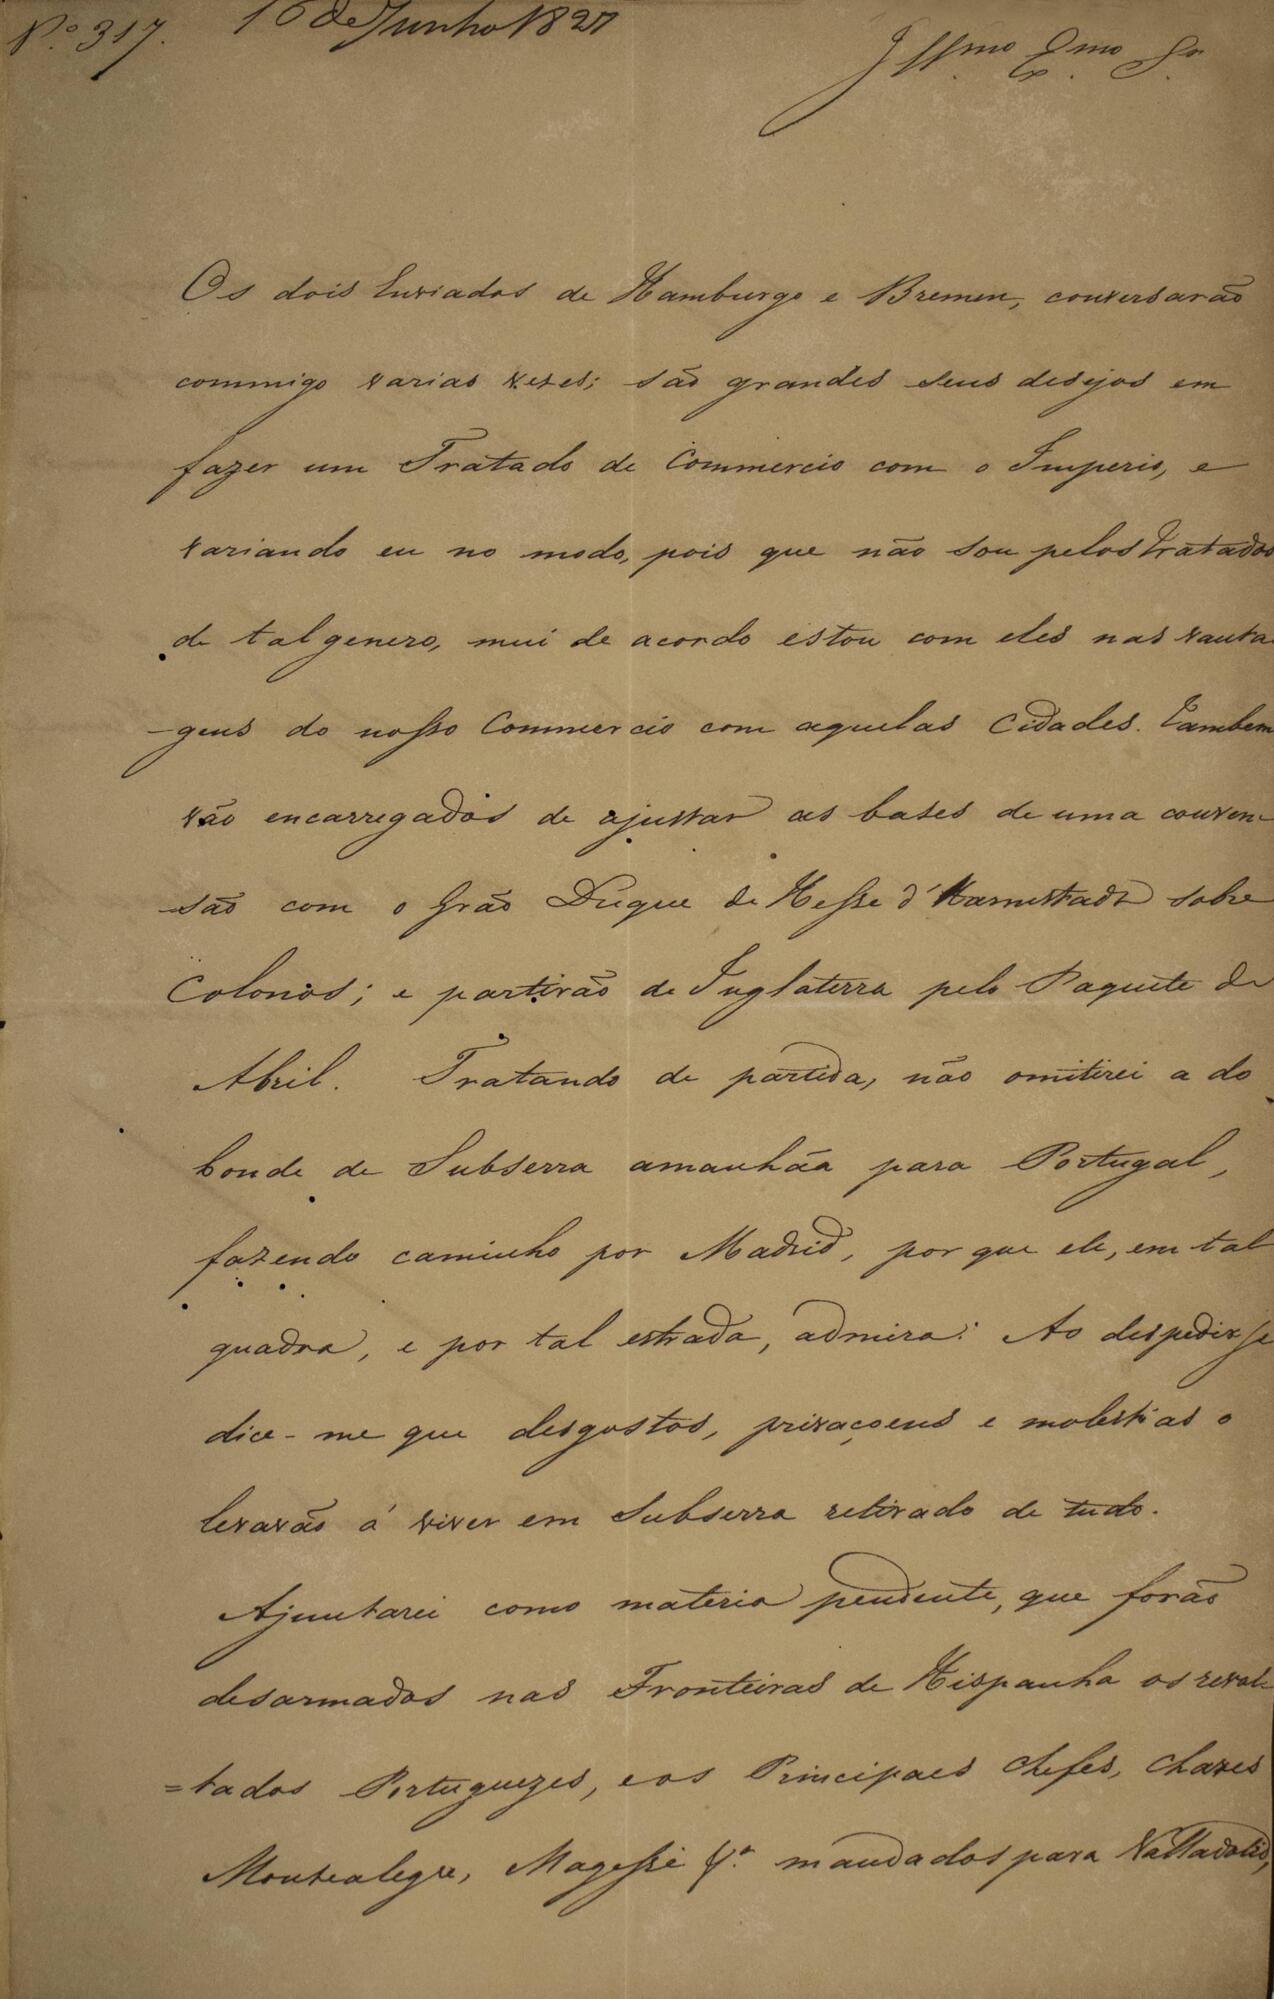 Nº 317. 16 de Junho 1827
Illmo Exmo Sr
Os dois Enviados de Hamburgo e Bremen, conversarão
commigo varias vezes; são grandes seus desejos em
fazer um Tratado de Commercio com o Imperio, e
variando eu no modo, pois que não sou pelos Tratados
de tal genero, mui de acordo estou com eles nas vanta
-gens do nosso Commercio com aquelas Cidades. Tambem
vão encarregados de ajustar as bases de uma conven-
-são com o Grão Duque de Hesse d'Harmstadt sobre
Colonos; e partirão de Inglaterra pelo Paquete de
Abril. Tratando de partida, não omitirei a do
Conde de Subserra amanhãa para Portugal,
fazendo caminho por Madrid, por que ele, em tal
quadra, e por tal estrada, admira: Ao despedir se
dice-me que desgostos, privaçoens e molestias o
levavão á viver em Subserra retirado de tudo.
Ajuntarei como materia pendente, que forão
desarmados nas Fronteiras de Hispanha os revol-
=tados Portuguezes, e os Principaes Chefes, Chaves
Montealegre, Magessi &ª mandados para Valladolid,